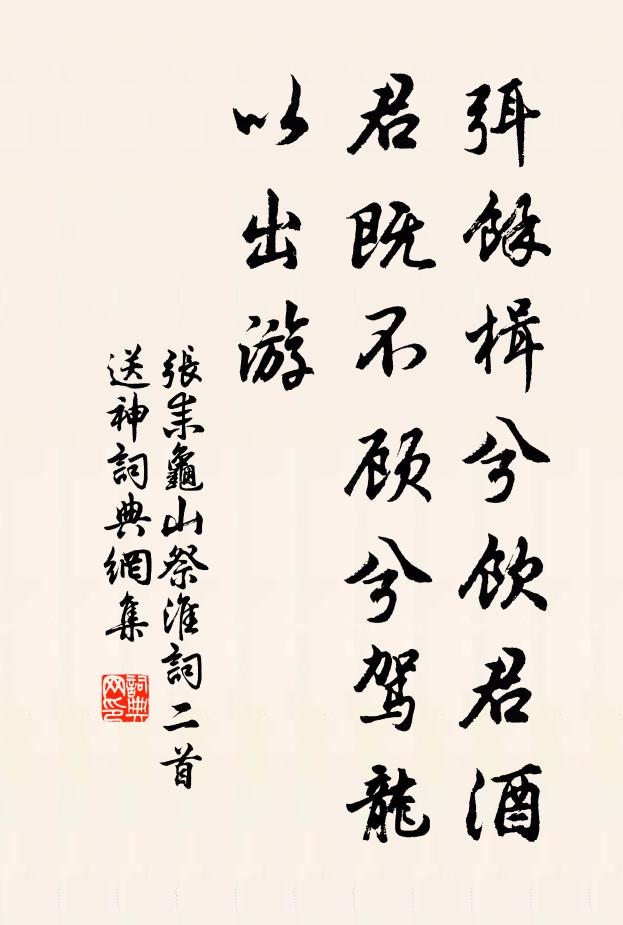 弭餘楫兮飲君酒
君既不顾兮駕龍
以出游
張耒龜山祭淮詞二首
送神詞典網集
詞典
网印